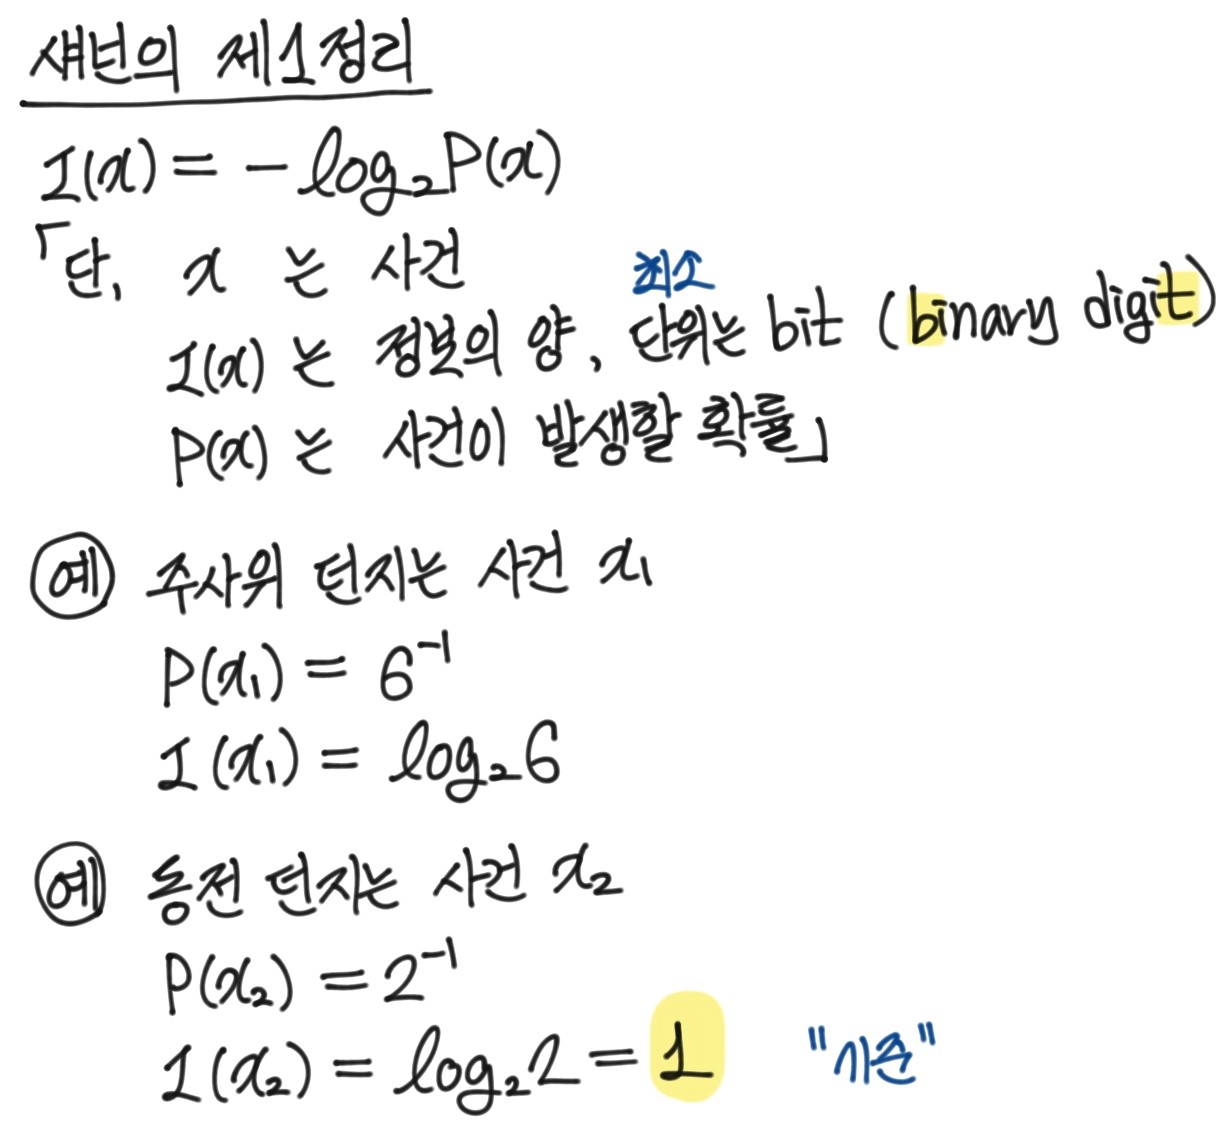 섀넌의 제1정리
I(x) = -log₂P(x)
「단, x 는 사건
최소
I(x) 는 정보의 양, 단위는 bit (binary digit)
P(x) 는 사건이 발생할 확률」
예 주사위 던지는 사건 x₁
P(x₁) = 6⁻¹
I(x₁) = log₂6
예 동전 던지는 사건 x₂
P(x₂) = 2⁻¹
I(x₂) = log₂2 = 1 "기준"